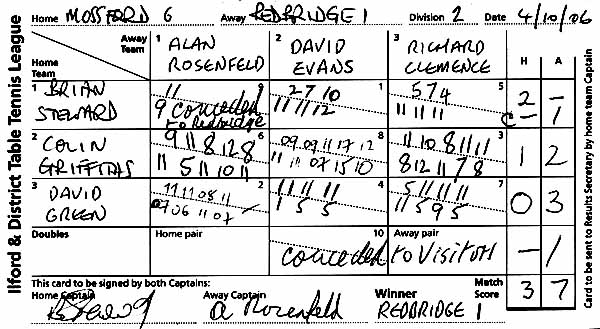 Ilford & District Table Tennis League
Home MOSSFORD 6 Away REDBRIDGE 1 Division 2 Date 4/10/06
Away Team 1 ALAN ROSENFELD 2 DAVID EVANS 3 RICHARD CLEMENCE H A
Home Team
1 BRIAN STEWARD
11 9
9 conceded to Redbridge
2 7 10 1
11 11 12
5 7 4 5
11 11 11
2 –
C – 1
2 COLIN GRIFFITHS
9 11 8 12 8 6
11 5 11 10 11
09 09 11 17 12 8
11 11 07 15 10
11 10 8 11 11 3
8 12 11 7 8
1 2
3 DAVID GREEN
11 11 08 11 2
07 06 11 07
11 11 11 4
1 5 5
5 11 11 11 7
11 5 9 5
0 3
Doubles Home pair 10 Away pair
conceded to Visitors – 1
This card to be signed by both Captains: Match Score 3 7
Home Captain Away Captain A Rosenfeld Winner REDBRIDGE 1
Card to be sent to Results Secretary by home team Captain